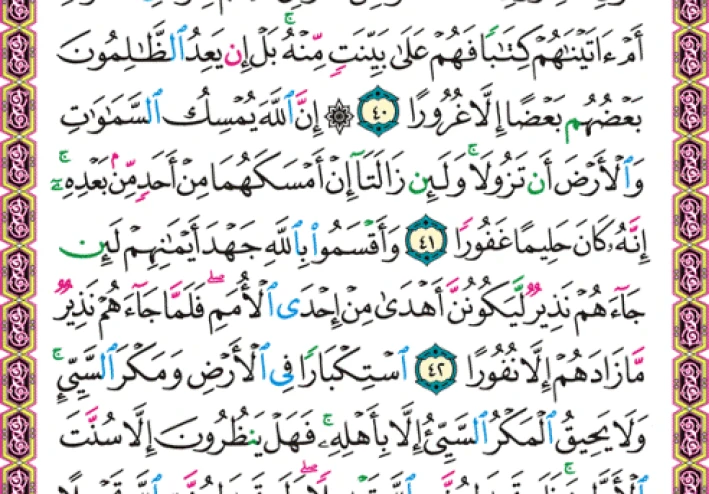 أَمْ ءَاتَيْنَٰهُمْ كِتَٰبًا فَهُمْ عَلَىٰ بَيِّنَتٍ مِّنْهُ ۚ بَلْ إِن يَعِدُ ٱلظَّٰلِمُونَ
بَعْضُهُم بَعْضًا إِلَّا غُرُورًا ٤٠ ۞ إِنَّ ٱللَّهَ يُمْسِكُ ٱلسَّمَٰوَٰتِ
وَٱلْأَرْضَ أَن تَزُولَا ۚ وَلَئِن زَالَتَآ إِنْ أَمْسَكَهُمَا مِنْ أَحَدٍ مِّنۢ بَعْدِهِۦٓ ۚ
إِنَّهُۥ كَانَ حَلِيمًا غَفُورًا ٤١ وَأَقْسَمُوا۟ بِٱللَّهِ جَهْدَ أَيْمَٰنِهِمْ لَئِن
جَآءَهُمْ نَذِيرٌ لَّيَكُونُنَّ أَهْدَىٰ مِنْ إِحْدَى ٱلْأُمَمِ ۖ فَلَمَّا جَآءَهُمْ نَذِيرٌ
مَّا زَادَهُمْ إِلَّا نُفُورًا ٤٢ ٱسْتِكْبَارًا فِى ٱلْأَرْضِ وَمَكْرَ ٱلسَّيِّئِ ۚ
وَلَا يَحِيقُ ٱلْمَكْرُ ٱلسَّيِّئُ إِلَّا بِأَهْلِهِۦ ۚ فَهَلْ يَنظُرُونَ إِلَّا سُنَّتَ